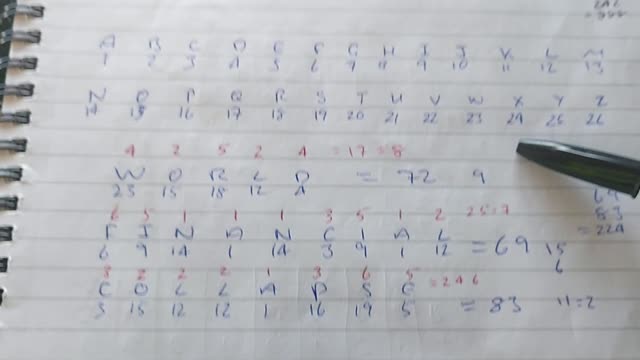 A B C D E F G H I J K L M
1 2 3 4 5 6 7 8 9 10 11 12 13
N O P Q R S T U V W X Y Z
14 15 16 17 18 19 20 21 22 23 24 25 26
4 2 5 2 4 =17=8
W O R L D = 72 9
23 15 18 12 4
6 5 1 1 1 3 5 1 2 25=7
F I N A N C I A L = 69 15
6 9 14 1 14 3 9 1 12 6
69
83
=224
3 2 2 2 1 3 6 5 =246
C O L L A P S E = 83 11=2
3 15 12 12 1 16 19 5